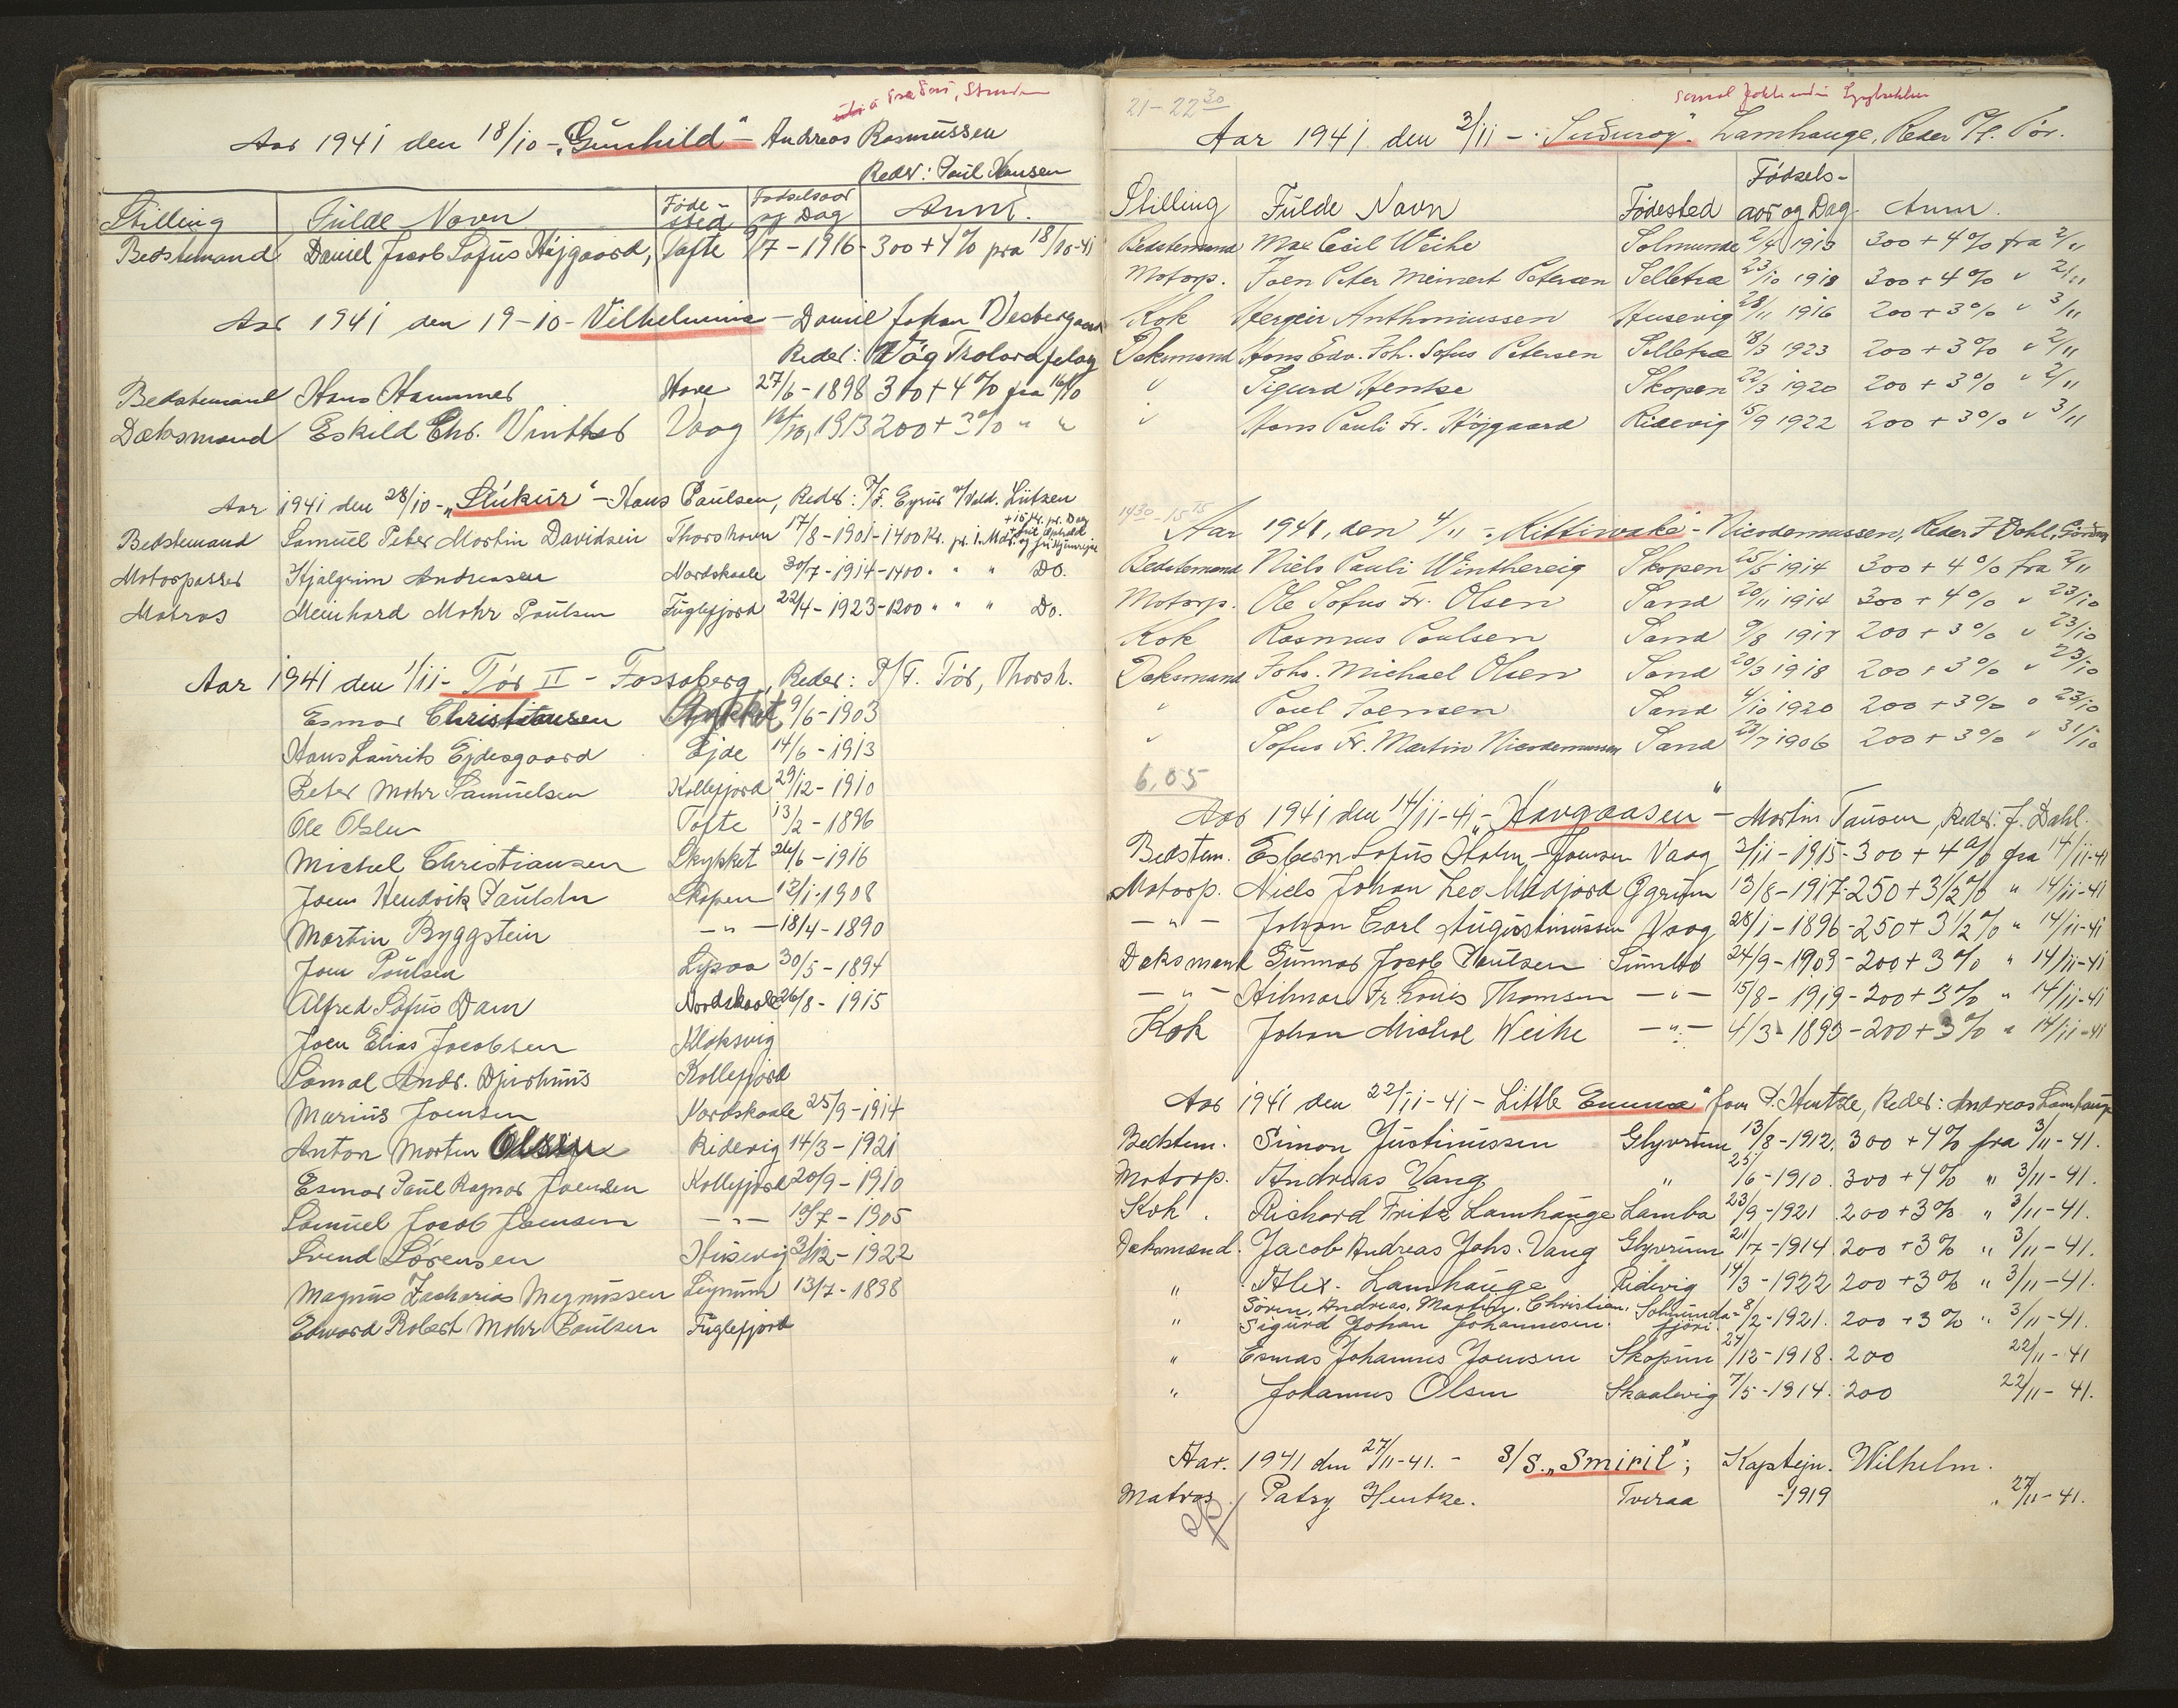 Aar 1941 den 18/10 - „Gunhild" - Andreas Rasmussen
Reder: Poul Hansen
Stilling Fulde Navn Føde-sted Fødselsaar og Dag Anm.
Bedstemand Daniel Jacob Sofus Højgaard, Tofte 9/7 - 1916 - 300 + 4% fra 18/10-41
Aar 1941 den 19-10 - Vilhelmina - Daniel Johan Vesbergaard
Reder: Vág Trolarafelag
Bedstemand Hans Hammer Hove 27/6 - 1898 300 + 4% fra 16/10
Dæksmand Eskild Chr. Vinther Vaag 1913 200 + 3% " "
Aar 1941 den 28/10 - „Slúkur" - Hans Paulsen, Reder: P/F. Eyrus v/ Vald. Lützen
Bedstemand Samuel Peter Martin Davidsen Thorshavn 17/8 - 1901 - 1400 Kr. pr. 1. Md. + 15 Kr. pr. Dag
Motorpasser Hjalgrim Andreasen Nordskaale 30/7 - 1914 - 1400 " " " Do.
Matros Meinhard Mohr Poulsen Fuglefjord 22/4 - 1923 - 1200 " " " Do.
Aar 1941 den 1/11 - Tór II - Fossaberg, Reder: P/F. Tór, Thorsh.
Esmar Christiansen Skykket 9/6 - 1903
Hans Laurits Ejdesgaard Ejde 14/6 - 1913
Peter Mohr Samuelsen Kollefjord 29/12 - 1910
Ole Olsen Tofte 13/2 - 1896
Michel Christiansen Skykket 26/6 - 1916
Joen Hendrik Paulsen Skopen 12/1 - 1908
Martin Byggstein - " - 18/4 - 1890
Joen Poulsen Lysaa 30/5 - 1894
Alfred Sofus Dam Nordskaale 26/8 - 1915
Joen Elias Jacobsen Klaksvig
Sámal Andr. Djurhuus Kollefjord
Marius Joensen Nordskaale 25/9 - 1914
Anton Morten Olsen Ridevig 14/3 - 1921
Esmar Paul Ragnar Joensen Kollefjord 20/9 - 1910
Samuel Jacob Joensen - " - 10/7 - 1905
Svend Sørensen Husevig 3/12 - 1922
Magnus Zacharias Magnussen Leynum 13/7 - 1898
Edward Robert Mohr Poulsen Fuglefjord
21 - 22 30
Aar 1941 den 3/11 - „Suduroy" Lamhauge, Reder P/f. Tór.
Stilling Fulde Navn Fødested Fødsels-aar og Dag Anm.
Bedstemand Max Cecil Weihe Solmunde 2/4 1913 300 + 4% fra 2/11
Motorp. Joen Peter Meinert Petersen Selletræ 23/10 1918 300 + 4% " 2/11
Kok Hergeir Anthoniussen Husevig 28/11 1916 200 + 3% " 3/11
Dæksmand Hans Edv. Joh. Sofus Petersen Selletræ 18/3 1923 200 + 3% " 2/11
" Sigurd Hentze Skopen 22/3 1920 200 + 3% " 2/11
" Hans Pauli Fr. Højgaard Ridevig 5/9 1922 200 + 3% " 3/11
14 30 - 15 15
Aar 1941, den 4/11 - „Kittiwake" - Nicodemussen, Reder J. Dahl,
Bedstemand Niels Pauli Winthereig Skopen 25/5 1914 300 + 4% fra 2/11
Motorp. Ole Sofus Fr. Olsen Sand 20/11 1914 300 + 4% " 23/10
Kok Rasmus Poulsen Sand 9/8 1917 200 + 3% " 23/10
Dæksmand Johs. Michael Olsen Sand 20/3 1918 200 + 3% " 23/10
" Poul Joensen Sand 4/10 1920 200 + 3% " 23/10
" Sofus Fr. Martin Nicodemussen Sand 23/7 1906 200 + 3% " 31/10
6,05
Aar 1941 den 14/11-41 - „Havgaasen" - Martin Tausen, Reder: J. Dahl.
Bedstem. Esbern Sofus Holm-Joensen Vaag 3/11 - 1915 - 300 + 4% fra 14/11-41
Motorp. Niels Johan Leo Midjord Øgrum 13/8 - 1917 - 250 + 3½% " 14/11-41
- " - Johan Carl Augustinussen Vaag 28/1 - 1896 - 250 + 3½% " 14/11-41
Dæksmand Gunnar Jacob Poulsen Sumbø 24/9 - 1909 - 200 + 3% " 14/11-41
- " - Hilmar Fr. Louis Thomsen - " - 15/8 - 1919 - 200 + 3% " 14/11-41
Kok Johan Michal Weihe - " - 4/3 - 1893 - 200 + 3% " 14/11-41
Aar 1941 den 22/11-41 - Little Emma" Joen P. Hentze, Reder: Andreas Lamhauge
Bedstem. Simon Justinussen Glyvrum 13/8 - 1912. 300 + 4% fra 3/11 - 41.
Motorp. Andreas Vang " 25/6 - 1910. 300 + 4% " 3/11 - 41.
Kok. Richard Fritz Lamhauge Lamba 23/9 - 1921 200 + 3% " 3/11 - 41.
Dæksmand. Jacob Andreas Johs. Vang Glyvrum 21/7 - 1914 200 + 3% " 3/11 - 41.
" Alex. Lamhauge Ridevig 14/3 - 1922 200 + 3% " 3/11 - 41.
" Søren, Andreas, Martin, Christian, Sigurd Johan Johannesen. Solmunda-fjøri. 8/2 - 1921. 200 + 3% " 3/11 - 41.
" Esmar Johannes Joensen Skopun 24/12 - 1918. 200 22/11 - 41
" Johannes Olsen Skaalevig 7/5 - 1914. 200 22/11 - 41.
Aar. 1941 den 27/11-41. - S/S. „Smiril"; Kaptejn. Wilhelm.
Matros. Patsy Hentze. Tveraa - 1919 " 27/11 - 41.